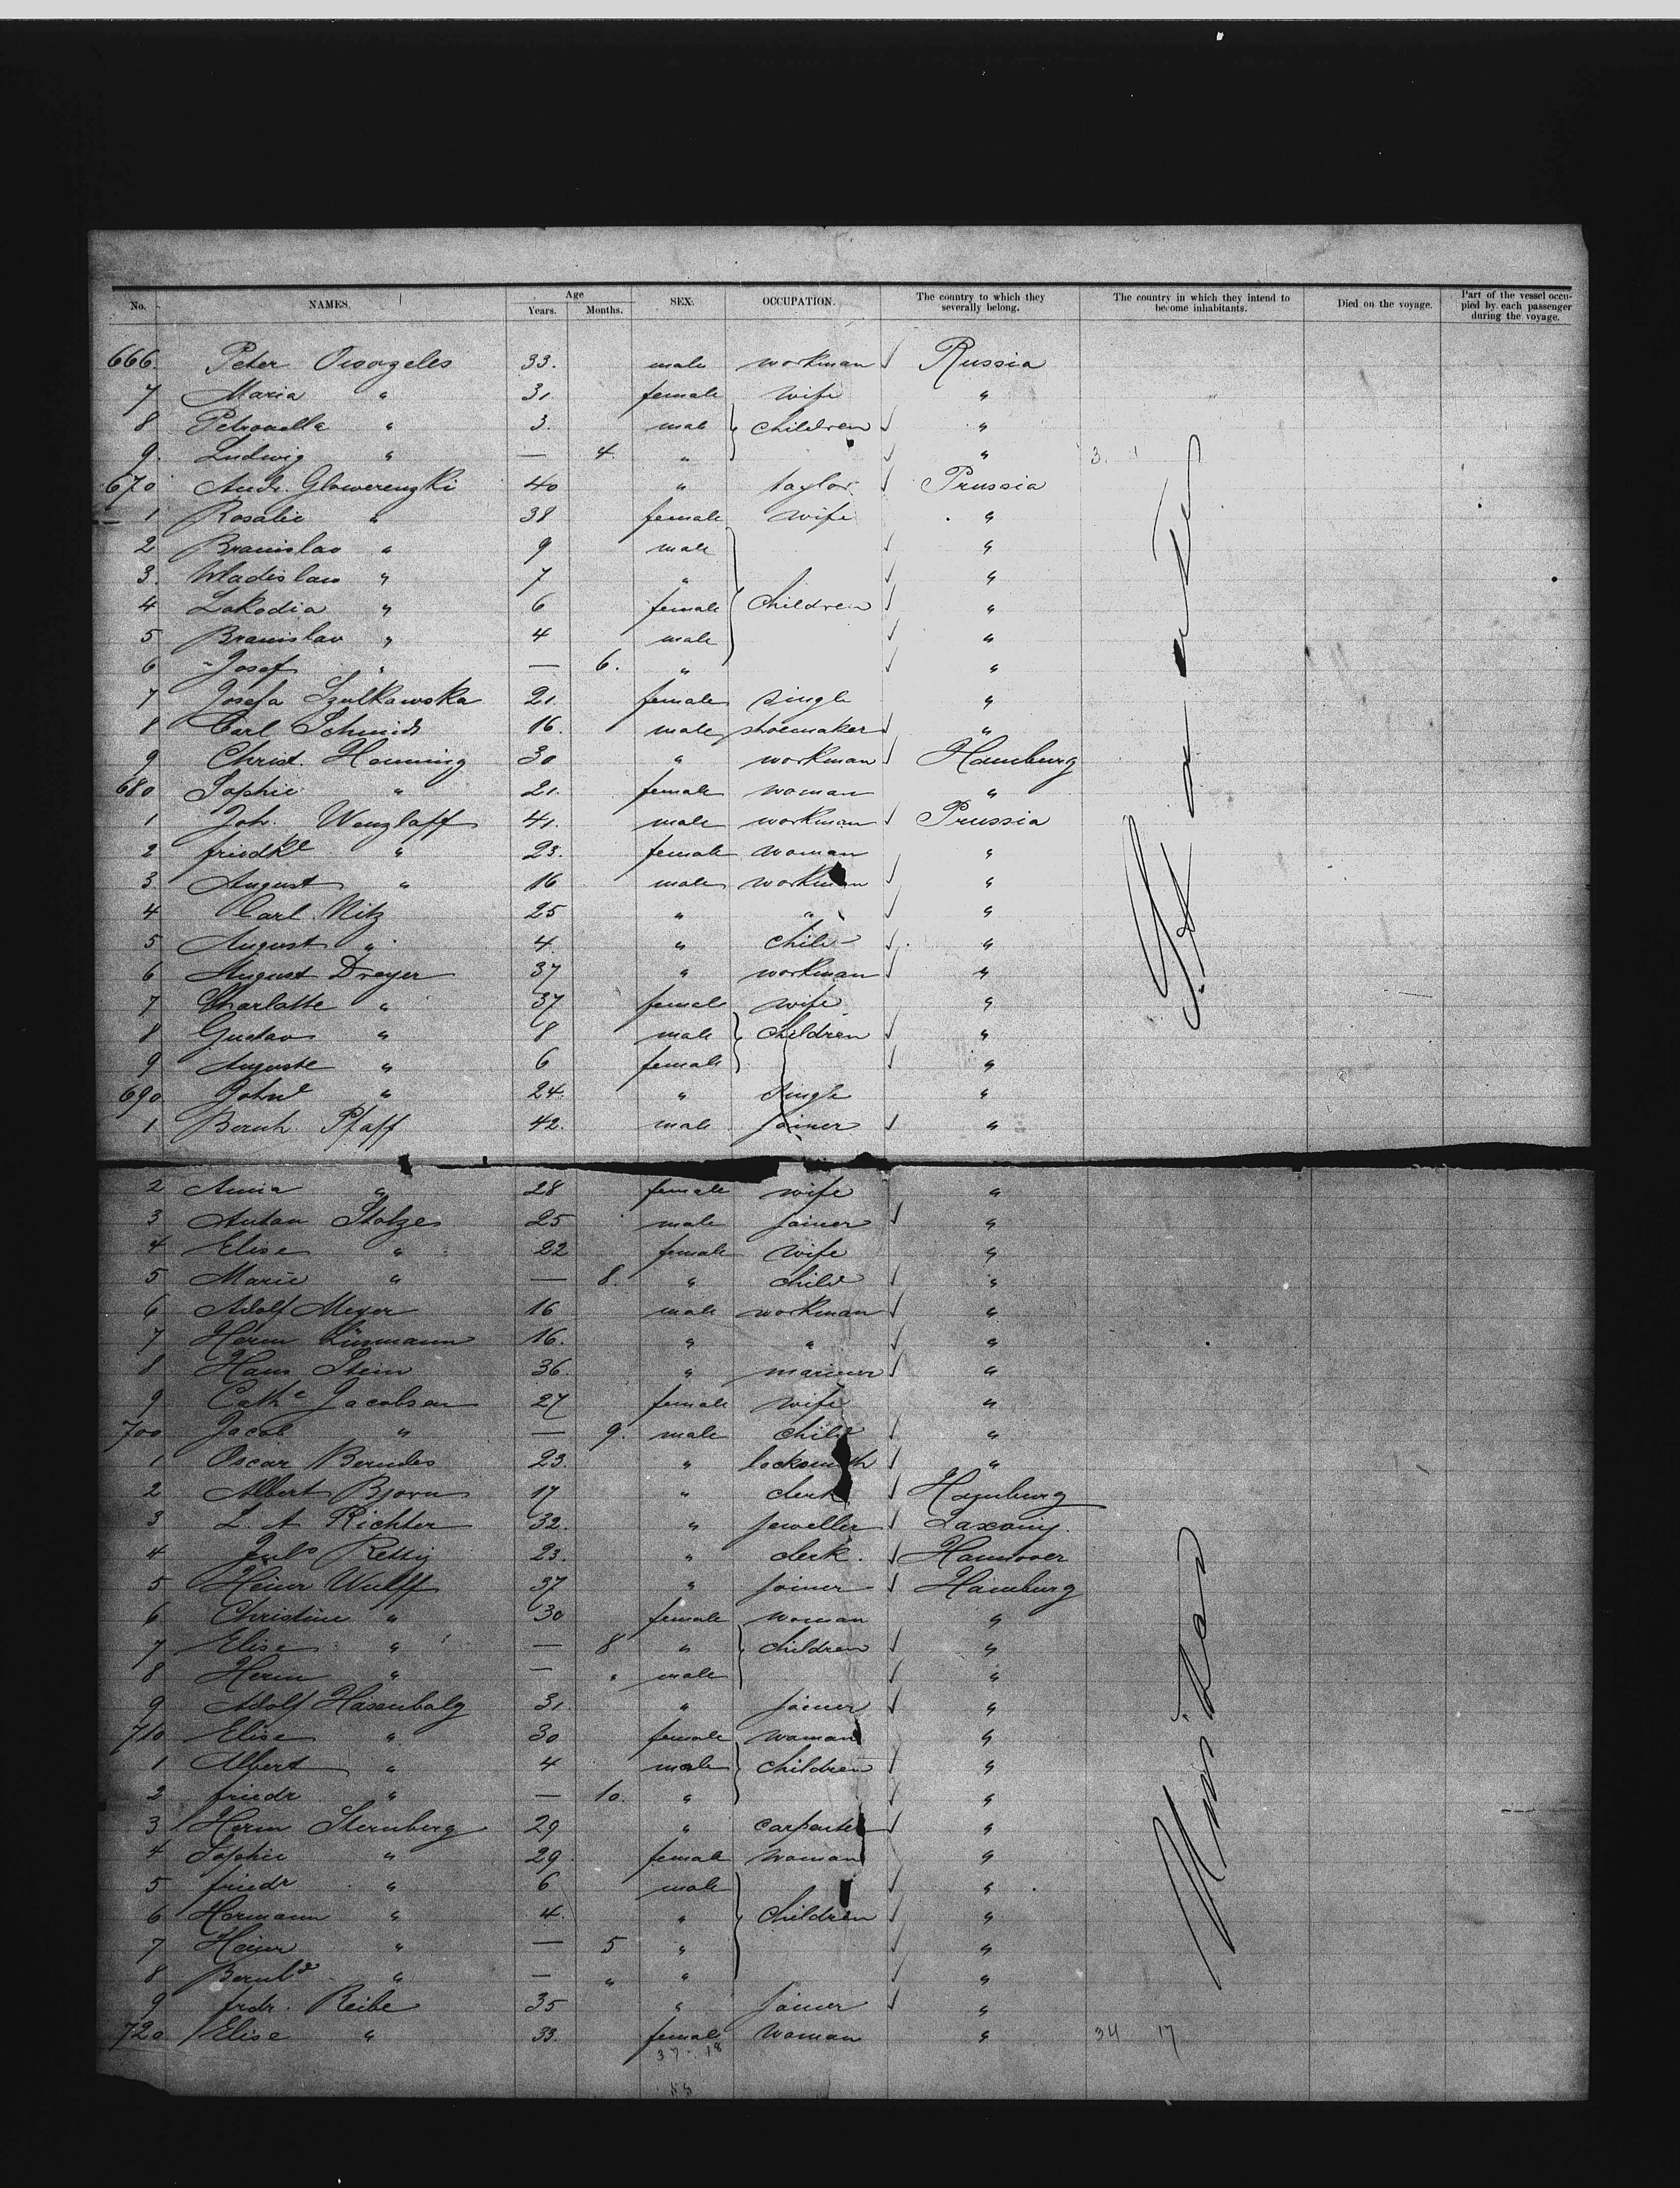 No. NAMES. Age Years. Months. SEX. OCCUPATION. The country to which they severally belong. The country in which they intend to become inhabitants. Died on the voyage. Part of the vessel occupied by each passenger during the voyage.
666. Peter 33. male workman Russia
7 Maria " 31 female wife "
8 Petronella " 3. male children "
9. Ludwig " — 4. " " 3. 1
670 Andr. Glowerenzki 40 " taylor Prussia
1 Rosalie " 38 female wife "
2 Branislav " 9 male "
3. Wladislaw " 7 " "
4 Lokadia " 6 female Children "
5 Branislav " 4 male "
6 Josef " — 6. " "
7 Josefa Szulkawska 21. female single "
8 Carl Schmidt 16. male shoemaker "
9 Christ. Henning 30 " workman Hamburg
680 Sophie " 21. female woman "
1 Joh. Wenzlaff 41. male workman Prussia
2 friedke " 23. female woman "
3. August " 16 male workman "
4 Carl Nitz 25 " " "
5 August " 4 " child "
6 August Dreyer 37 " workman "
7 Charlotte " 37 female wife "
8 Gustav " 8 male children "
9 Auguste " 6 female "
690 Johne " 24. " single "
1 Bernh. Pfaff 42. male joiner "
2 Anna " 28 female wife "
3 Anton Stolze 25 male joiner "
4 Elise " 22 female wife "
5 Marie " — 8. " child "
6 Adolf Meyer 16 male workman "
7 Herm Lüsmann 16. " " "
8 Hans Stein 36. " mariner "
9 Cathe Jacobsen 27 female wife "
700 Jacob " — 9. male child "
1 Oscar Berndes 23. " locksmith "
2 Albert Bjorn 17 " clerk Hamburg
3 L. A Richter 32. " jeweller Saxony.
4 Juls Rettig 23. " clerk. Hannover
5 Heinr Wulff 37 " joiner Hamburg
6 Christine " 30 female woman "
7 Elise " — 8 " children "
8 Herm " — " male "
9 Adolf Hasenbalg 31. " joiner "
710 Elise " 30 female woman "
1 Albert " 4 male children "
2 friedr " — 10. " "
3 Herm Sternberg 29 " carpenter "
4 Sophie " 29. female woman "
5 friedr " 6 male "
6 Hermann " 4. " children "
7 Heinr " — 5 " "
8 Bernhd " — " " "
9 frdr. Reibe 35 " joiner "
720 Elise " 33. female woman " 34 17
37 - 18